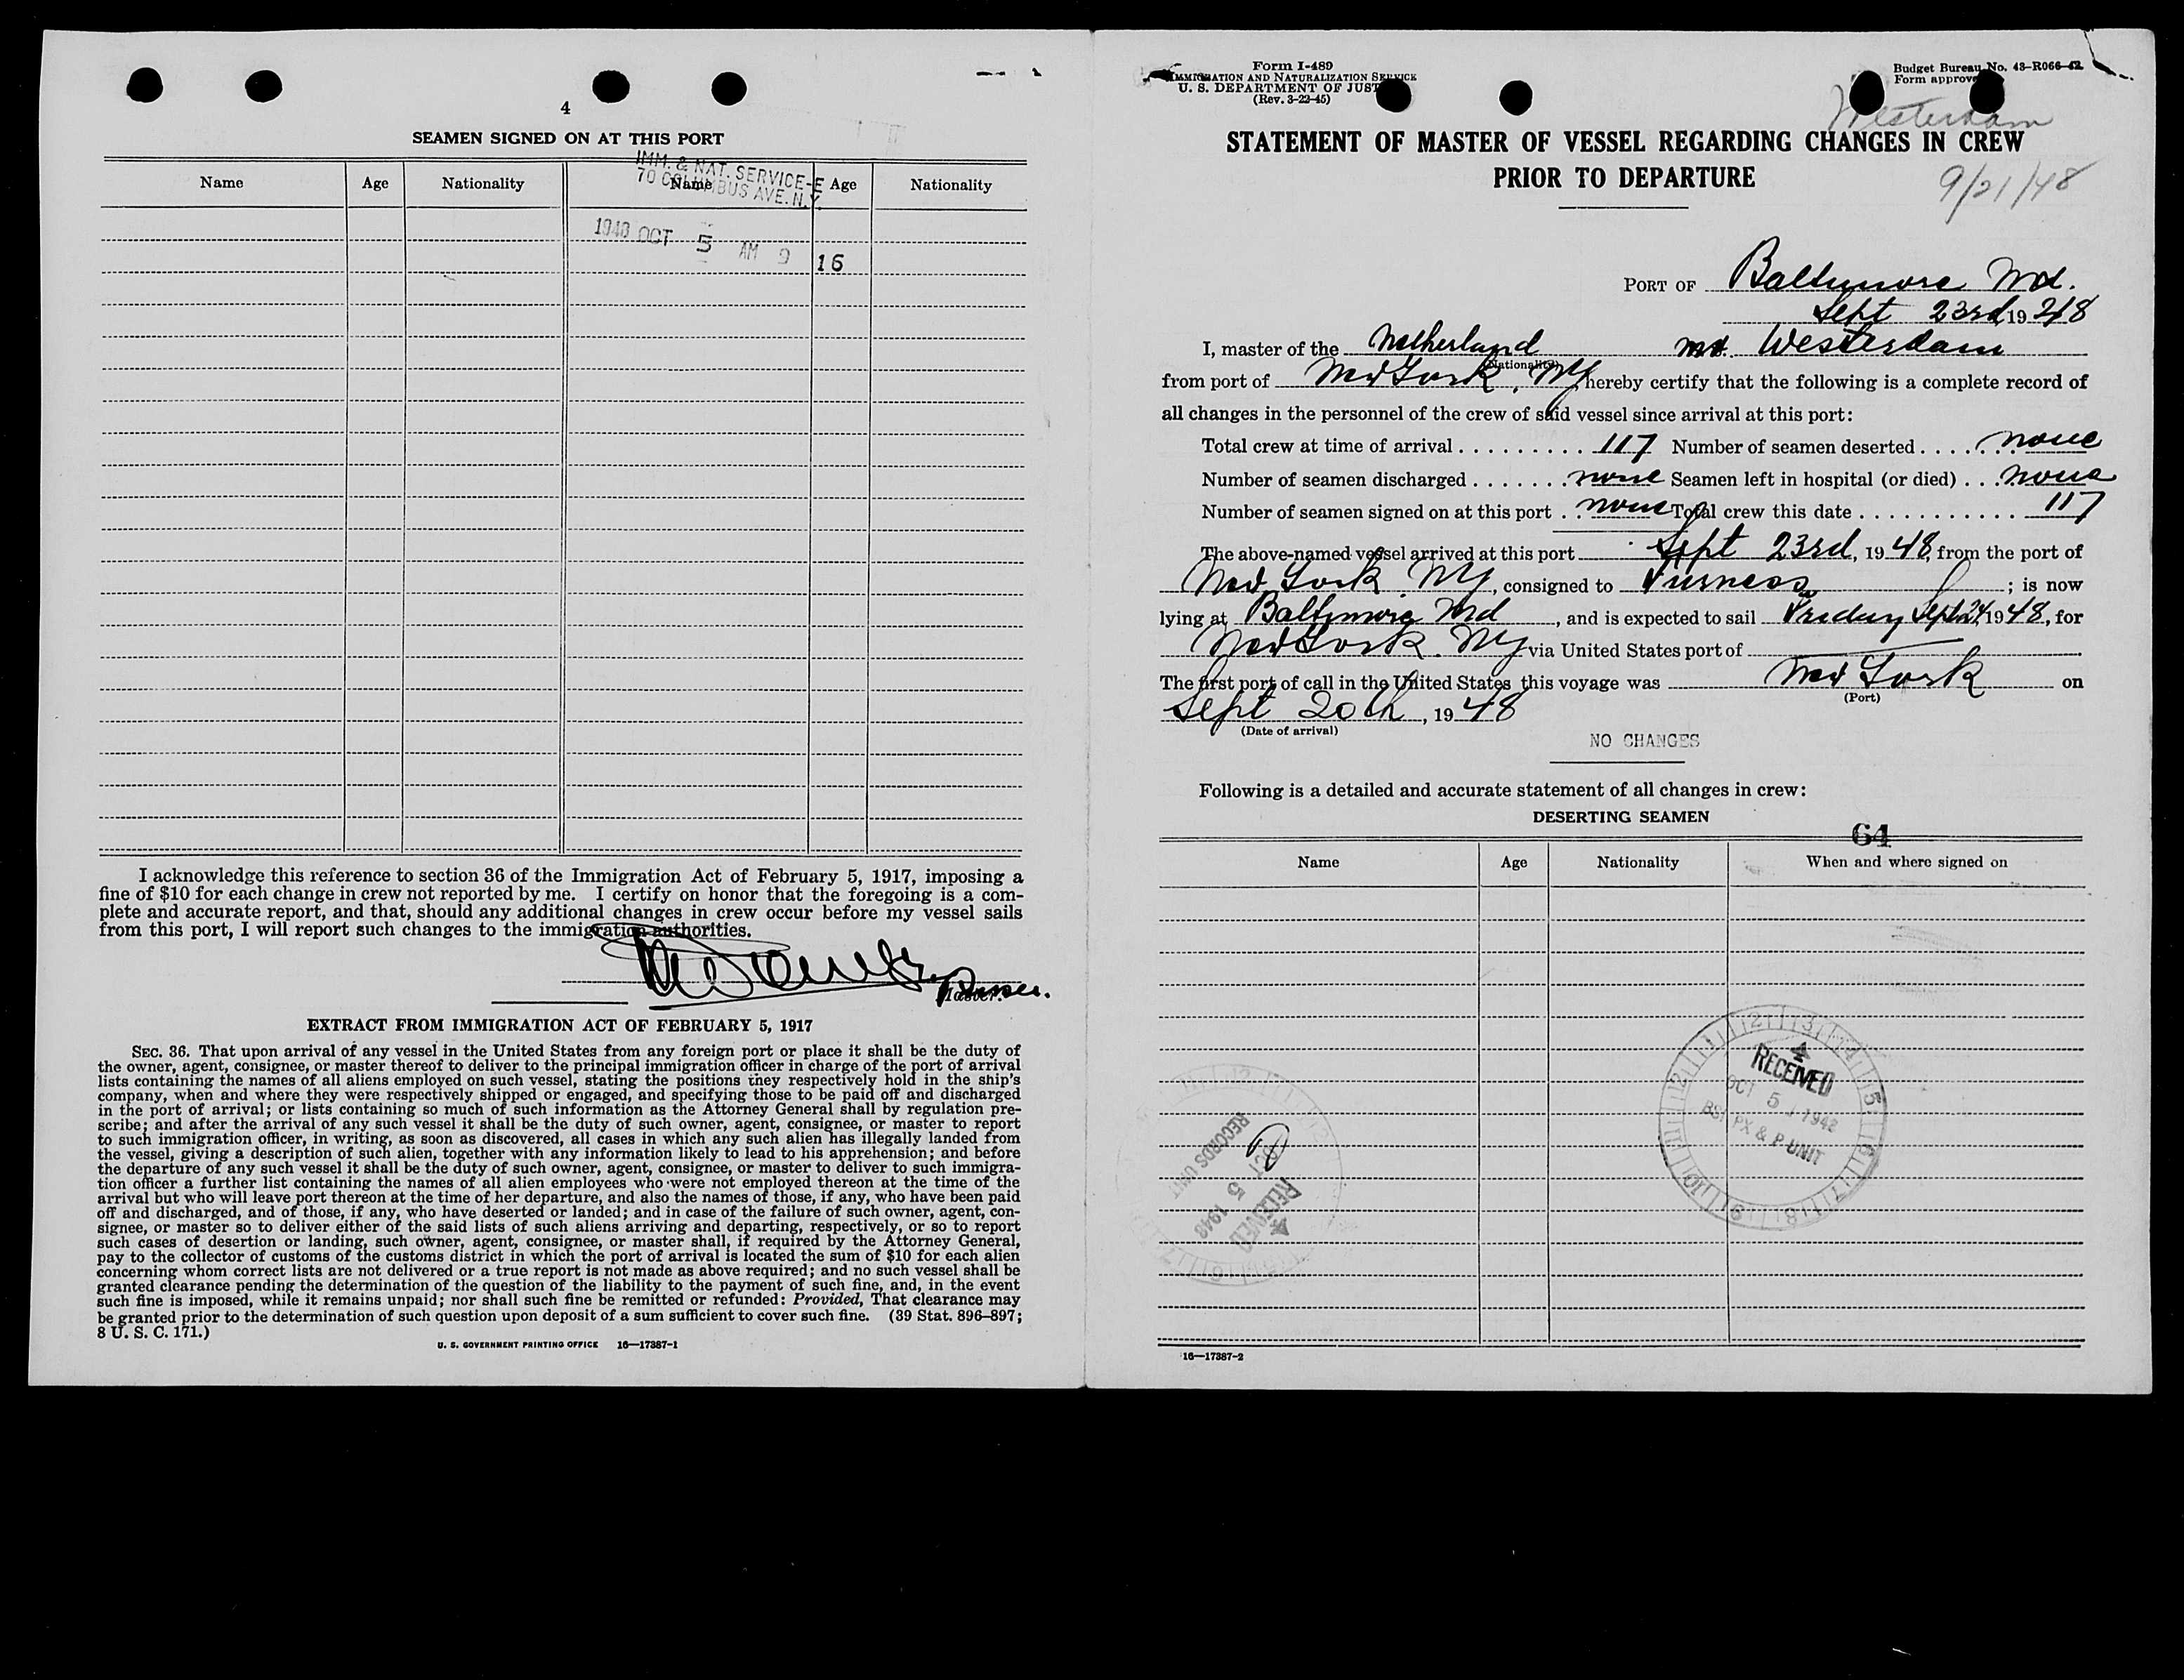 4
SEAMEN SIGNED ON AT THIS PORT
Name Age Nationality Name Age Nationality
IMM. & NAT. SERVICE-E
70 COLUMBUS AVE. N.Y.
1948 OCT 5 AM 9 16
I acknowledge this reference to section 36 of the Immigration Act of February 5, 1917, imposing a
fine of $10 for each change in crew not reported by me. I certify on honor that the foregoing is a com-
plete and accurate report, and that, should any additional changes in crew occur before my vessel sails
from this port, I will report such changes to the immigration authorities.
Master.
Purser.
EXTRACT FROM IMMIGRATION ACT OF FEBRUARY 5, 1917
SEC. 36. That upon arrival of any vessel in the United States from any foreign port or place it shall be the duty of
the owner, agent, consignee, or master thereof to deliver to the principal immigration officer in charge of the port of arrival
lists containing the names of all aliens employed on such vessel, stating the positions they respectively hold in the ship's
company, when and where they were respectively shipped or engaged, and specifying those to be paid off and discharged
in the port of arrival; or lists containing so much of such information as the Attorney General shall by regulation pre-
scribe; and after the arrival of any such vessel it shall be the duty of such owner, agent, consignee, or master to report
to such immigration officer, in writing, as soon as discovered, all cases in which any such alien has illegally landed from
the vessel, giving a description of such alien, together with any information likely to lead to his apprehension; and before
the departure of any such vessel it shall be the duty of such owner, agent, consignee, or master to deliver to such immigra-
tion officer a further list containing the names of all alien employees who were not employed thereon at the time of the
arrival but who will leave port thereon at the time of her departure, and also the names of those, if any, who have been paid
off and discharged, and of those, if any, who have deserted or landed; and in case of the failure of such owner, agent, con-
signee, or master so to deliver either of the said lists of such aliens arriving and departing, respectively, or so to report
such cases of desertion or landing, such owner, agent, consignee, or master shall, if required by the Attorney General,
pay to the collector of customs of the customs district in which the port of arrival is located the sum of $10 for each alien
concerning whom correct lists are not delivered or a true report is not made as above required; and no such vessel shall be
granted clearance pending the determination of the question of the liability to the payment of such fine, and, in the event
such fine is imposed, while it remains unpaid; nor shall such fine be remitted or refunded: Provided, That clearance may
be granted prior to the determination of such question upon deposit of a sum sufficient to cover such fine. (39 Stat. 896–897;
8 U. S. C. 171.)
U. S. GOVERNMENT PRINTING OFFICE 16—17387-1
Form I-489
IMMIGRATION AND NATURALIZATION SERVICE
U. S. DEPARTMENT OF JUST
(Rev. 3-22-45)
Budget Bureau No. 43-R066-42
Form approve
Westerdam
STATEMENT OF MASTER OF VESSEL REGARDING CHANGES IN CREW
PRIOR TO DEPARTURE
9/21/48
PORT OF Baltimore Md.
Sept 23rd, 1948
I, master of the Netherland ms. Westerdam
(Nationality)
from port of New York, NY hereby certify that the following is a complete record of
all changes in the personnel of the crew of said vessel since arrival at this port:
Total crew at time of arrival . . . . . . . . . 117 Number of seamen deserted . . . . . . none
Number of seamen discharged . . . . . . . none Seamen left in hospital (or died) . . . none
Number of seamen signed on at this port . . none Total crew this date . . . . . . . . . . . . 117
The above-named vessel arrived at this port Sept 23rd, 1948, from the port of
New York NY, consigned to Furness ; is now
lying at Baltimore Md , and is expected to sail Friday Sept 24, 1948, for
New York. NY via United States port of
The first port of call in the United States this voyage was New York on
(Port)
Sept 20th, 1948
(Date of arrival)
NO CHANGES
Following is a detailed and accurate statement of all changes in crew:
DESERTING SEAMEN
64
Name Age Nationality When and where signed on
RECEIVED
OCT 5 1942
BSI PX & P. UNIT
RECORDS UNIT
OCT 5 1948
RECEIVED
16—17387-2